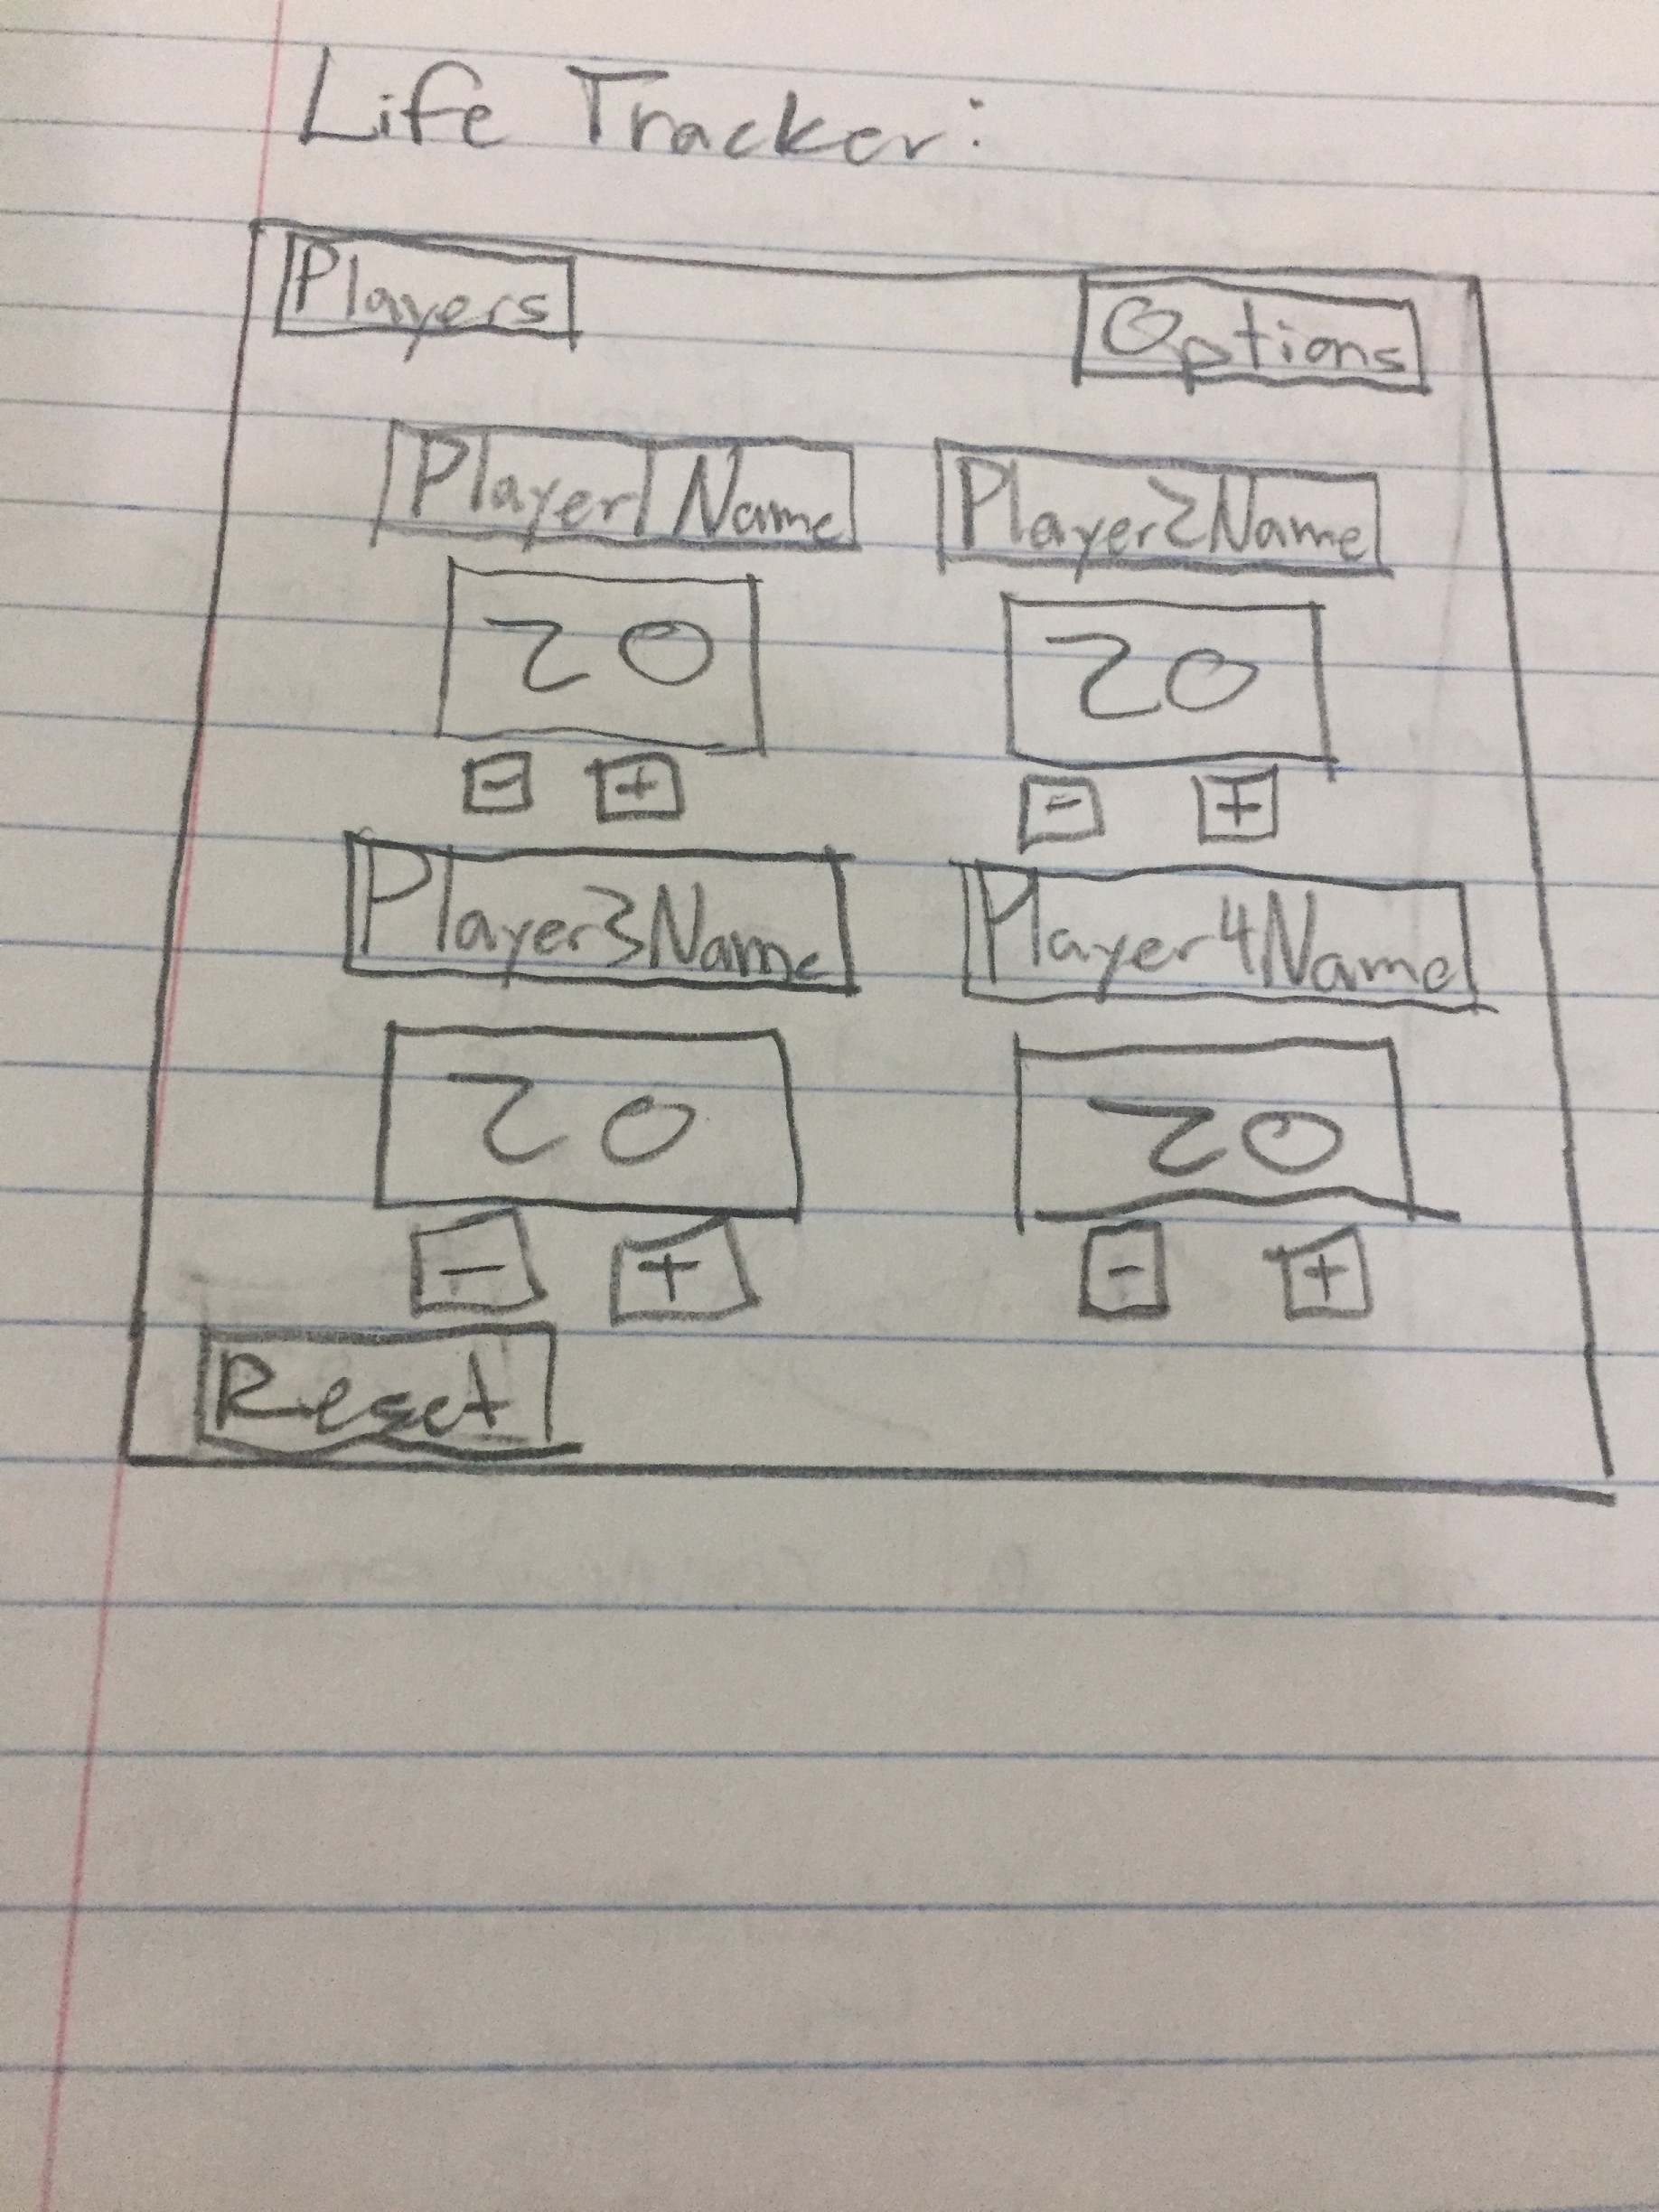 Life Tracker:
Players Options
Player1Name Player2Name
20 20
- + - +
Player3Name Player4Name
20 20
- + - +
Reset